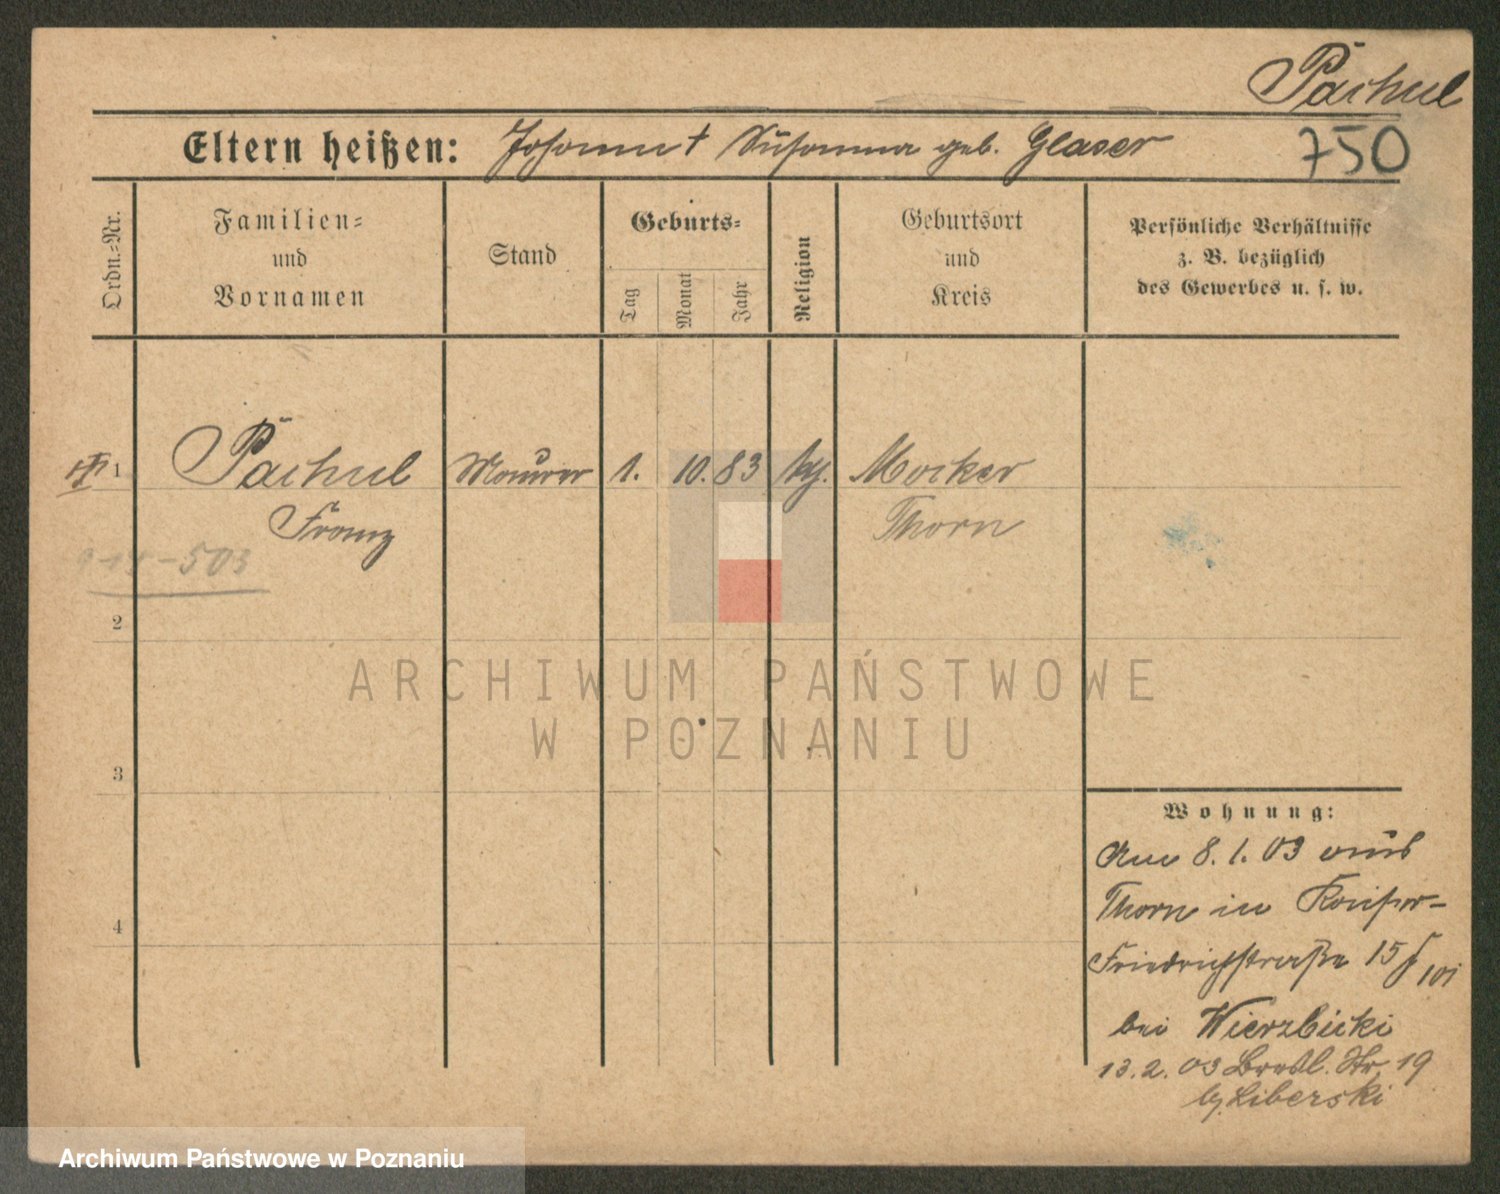 Pachul
Eltern heißen: Johann † Susanna geb. Glaser
750
Ordn.-Nr.
Familien- und Vornamen
Stand
Geburts-
Tag
Monat
Jahr
Religion
Geburtsort und Kreis
Persönliche Verhältnisse
z. B. bezüglich
des Gewerbes u. s. w.
1 Pachul Maurer 1. 10. 83 kh. Mocker
Franz Thorn
503
2
3
4
ARCHIWUM PAŃSTWOWE
W POZNANIU
Wohnung:
Am 8. 1. 03 aus
Thorn in Kaiser-
Friedrichstraße 15
bei Wierzbicki
13. 2. 03 Bresl. Str. 19
b. Liberski
Archiwum Państwowe w Poznaniu